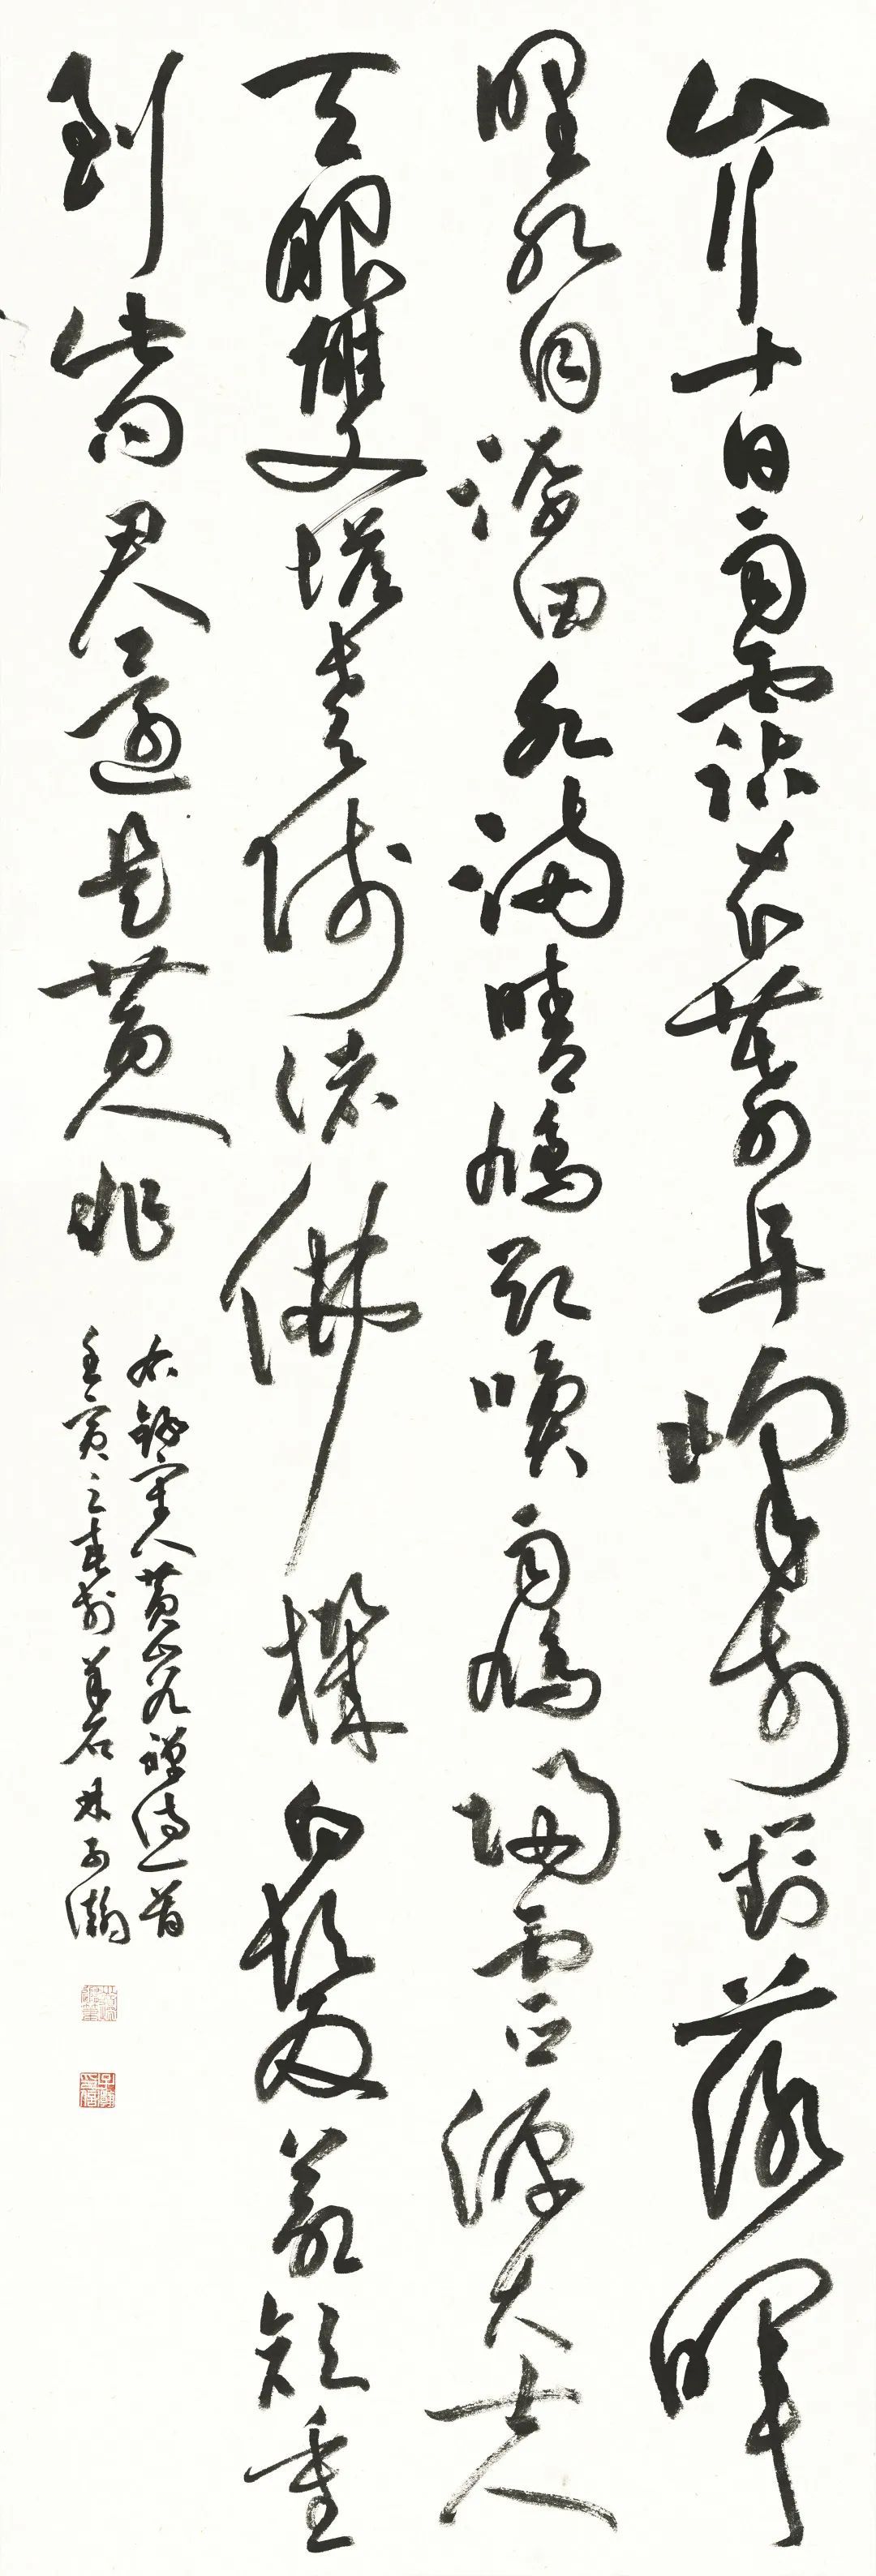 山行十日雨霑衣幕阜峰前對落暉
野水自添田水滿晴鳩却喚雨鳩歸靈源大士人
天眼雙塔老師諸佛機白髮蒼顏重
到此問君還是昔人非
右錄宋人黃山谷禪詩一首
壬寅之春於羊石林子瀚